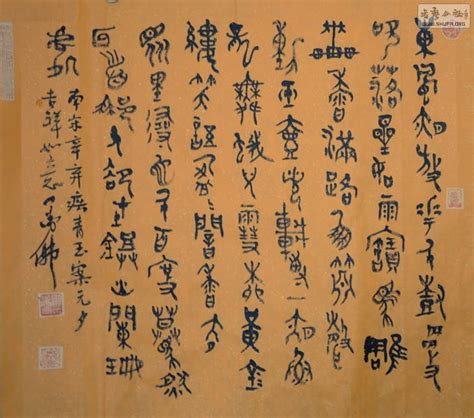 東風夜放花千樹更
吹落星如雨寶馬雕
車香滿路鳳簫聲
動玉壺光轉一夜魚
龍舞蛾兒雪柳黃金
縷笑語盈盈暗香去
眾里尋他千百度驀然
回首那人卻在燈火闌珊
處
南宋辛弃疾青玉案元夕
吉祥如意
佛
SHUFA.ORG